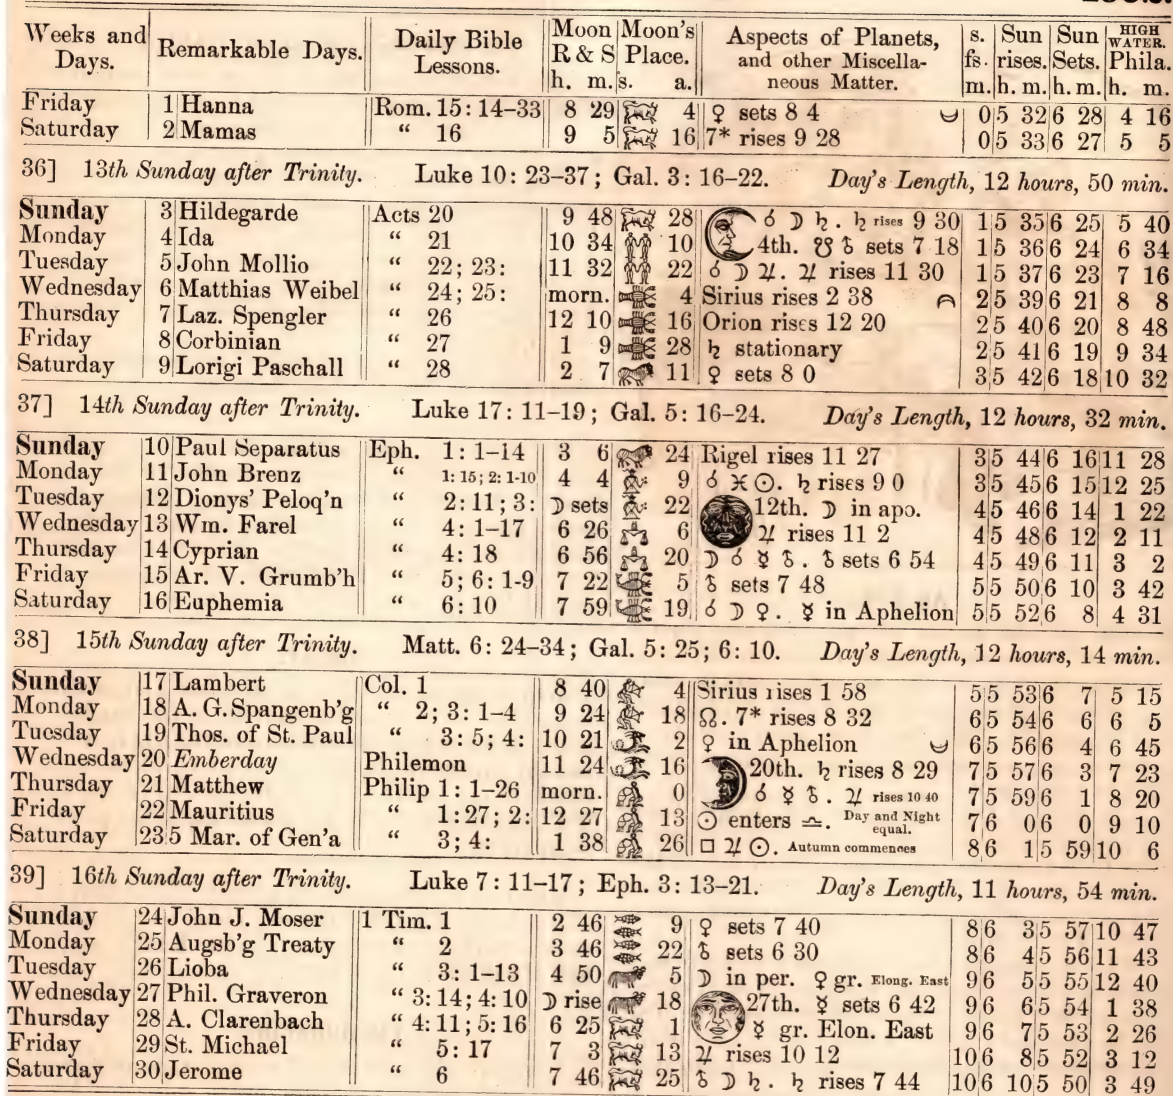 Weeks and Days. Remarkable Days. Daily Bible Lessons. Moon R & S h. m. Moon's Place. s. a. Aspects of Planets, and other Miscellaneous Matter. s. fs. m. Sun rises. h. m. Sun Sets. h. m. HIGH WATER. Phila. h. m.
Friday 1 Hanna Rom. 15: 14–33 8 29 4 ♀ sets 8 4 0 5 32 6 28 4 16
Saturday 2 Mamas “ 16 9 5 16 7* rises 9 28 0 5 33 6 27 5 5
36] 13th Sunday after Trinity. Luke 10: 23–37; Gal. 3: 16–22. Day's Length, 12 hours, 50 min.
Sunday 3 Hildegarde Acts 20 9 48 28 ☌ ☽ ♄. ♄ rises 9 30 1 5 35 6 25 5 40
Monday 4 Ida “ 21 10 34 10 4th. ☋ ♁ sets 7 18 1 5 36 6 24 6 34
Tuesday 5 John Mollio “ 22; 23: 11 32 22 ☌ ☽ ♃. ♃ rises 11 30 1 5 37 6 23 7 16
Wednesday 6 Matthias Weibel “ 24; 25: morn. 4 Sirius rises 2 38 2 5 39 6 21 8 8
Thursday 7 Laz. Spengler “ 26 12 10 16 Orion rises 12 20 2 5 40 6 20 8 48
Friday 8 Corbinian “ 27 1 9 28 ♄ stationary 2 5 41 6 19 9 34
Saturday 9 Lorigi Paschall “ 28 2 7 11 ♀ sets 8 0 3 5 42 6 18 10 32
37] 14th Sunday after Trinity. Luke 17: 11–19; Gal. 5: 16–24. Day's Length, 12 hours, 32 min.
Sunday 10 Paul Separatus Eph. 1: 1–14 3 6 24 Rigel rises 11 27 3 5 44 6 16 11 28
Monday 11 John Brenz “ 1: 15; 2: 1-10 4 4 9 ☌ ♓ ☉. ♄ rises 9 0 3 5 45 6 15 12 25
Tuesday 12 Dionys' Peloq'n “ 2: 11; 3: ☽ sets 22 12th. ☽ in apo. 4 5 46 6 14 1 22
Wednesday 13 Wm. Farel “ 4: 1–17 6 26 6 ♃ rises 11 2 4 5 48 6 12 2 11
Thursday 14 Cyprian “ 4: 18 6 56 20 ☽ ☌ ☿ ♁. ♁ sets 6 54 4 5 49 6 11 3 2
Friday 15 Ar. V. Grumb'h “ 5; 6: 1-9 7 22 5 ♁ sets 7 48 5 5 50 6 10 3 42
Saturday 16 Euphemia “ 6: 10 7 59 19 ☌ ☽ ♀. ☿ in Aphelion 5 5 52 6 8 4 31
38] 15th Sunday after Trinity. Matt. 6: 24–34; Gal. 5: 25; 6: 10. Day's Length, 12 hours, 14 min.
Sunday 17 Lambert Col. 1 8 40 4 Sirius rises 1 58 5 5 53 6 7 5 15
Monday 18 A. G. Spangenb'g “ 2; 3: 1–4 9 24 18 ☊. 7* rises 8 32 6 5 54 6 6 6 5
Tuesday 19 Thos. of St. Paul “ 3: 5; 4: 10 21 2 ♀ in Aphelion 6 5 56 6 4 6 45
Wednesday 20 Emberday Philemon 11 24 16 20th. ♄ rises 8 29 7 5 57 6 3 7 23
Thursday 21 Matthew Philip 1: 1–26 morn. 0 ☌ ☿ ♁. ♃ rises 10 40 7 5 59 6 1 8 20
Friday 22 Mauritius “ 1: 27; 2: 12 27 13 ☉ enters ♎. Day and Night equal. 7 6 0 6 0 9 10
Saturday 23 5 Mar. of Gen'a “ 3; 4: 1 38 26 □ ♃ ☉. Autumn commences 8 6 1 5 59 10 6
39] 16th Sunday after Trinity. Luke 7: 11–17; Eph. 3: 13–21. Day's Length, 11 hours, 54 min.
Sunday 24 John J. Moser 1 Tim. 1 2 46 9 ♀ sets 7 40 8 6 3 5 57 10 47
Monday 25 Augsb'g Treaty “ 2 3 46 22 ♁ sets 6 30 8 6 4 5 56 11 43
Tuesday 26 Lioba “ 3: 1–13 4 50 5 ☽ in per. ♀ gr. Elong. East 9 6 5 5 55 12 40
Wednesday 27 Phil. Graveron “ 3: 14; 4: 10 ☽ rise 18 27th. ☿ sets 6 42 9 6 6 5 54 1 38
Thursday 28 A. Clarenbach “ 4: 11; 5: 16 6 25 1 ☿ gr. Elon. East 9 6 7 5 53 2 26
Friday 29 St. Michael “ 5: 17 7 3 13 ♃ rises 10 12 10 6 8 5 52 3 12
Saturday 30 Jerome “ 6 7 46 25 ♁ ☽ ♄. ♄ rises 7 44 10 6 10 5 50 3 49